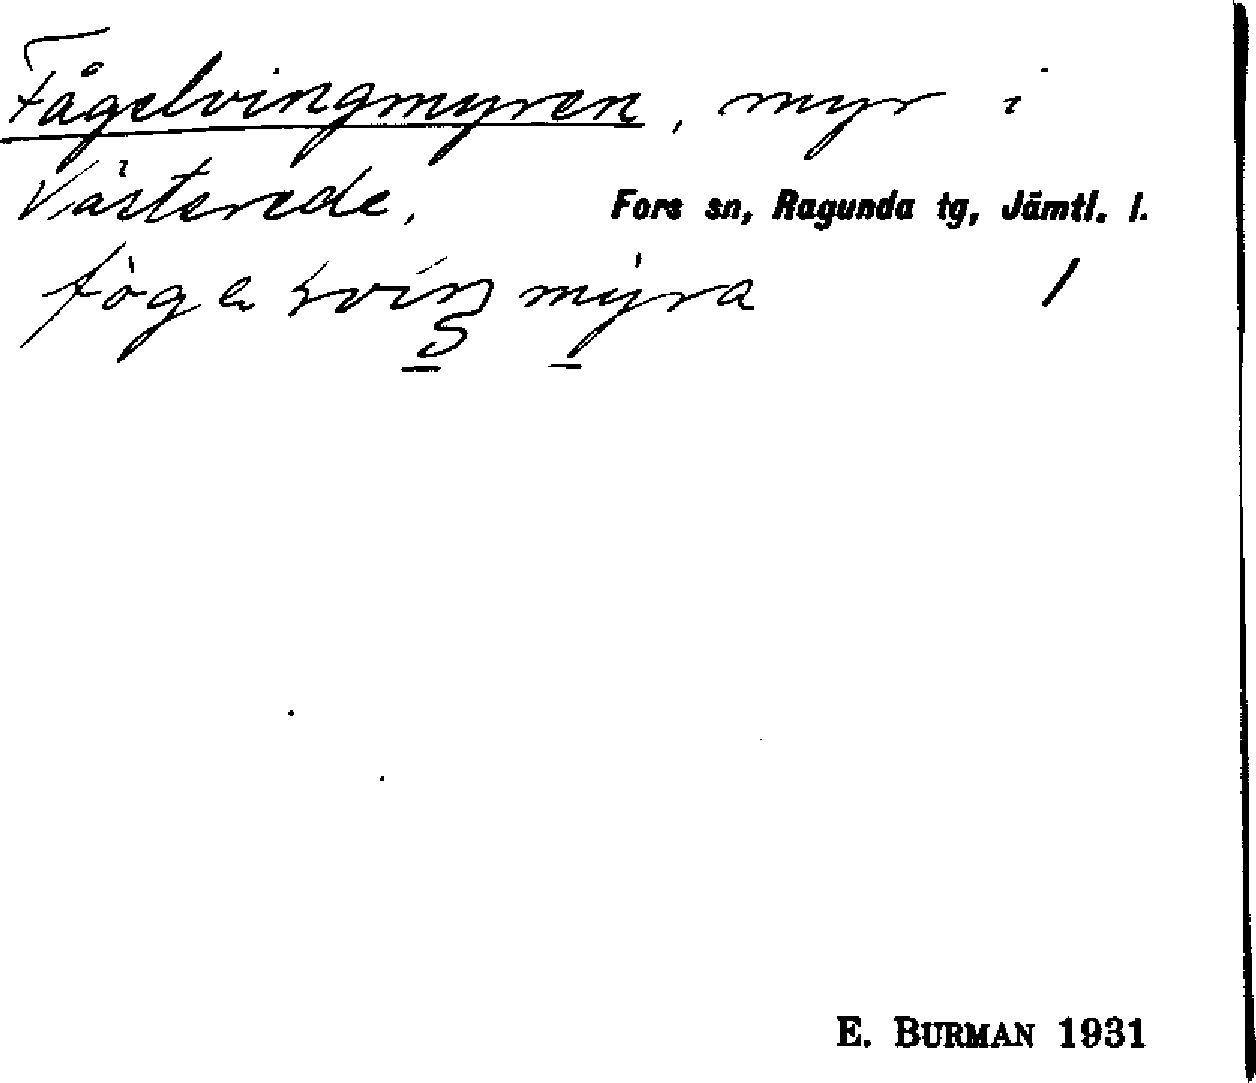 Fågelvingmyren, myr i
Västerede, Fors sn, Ragunda tg, Jämtl. l.
1
E. BURMAN 1931